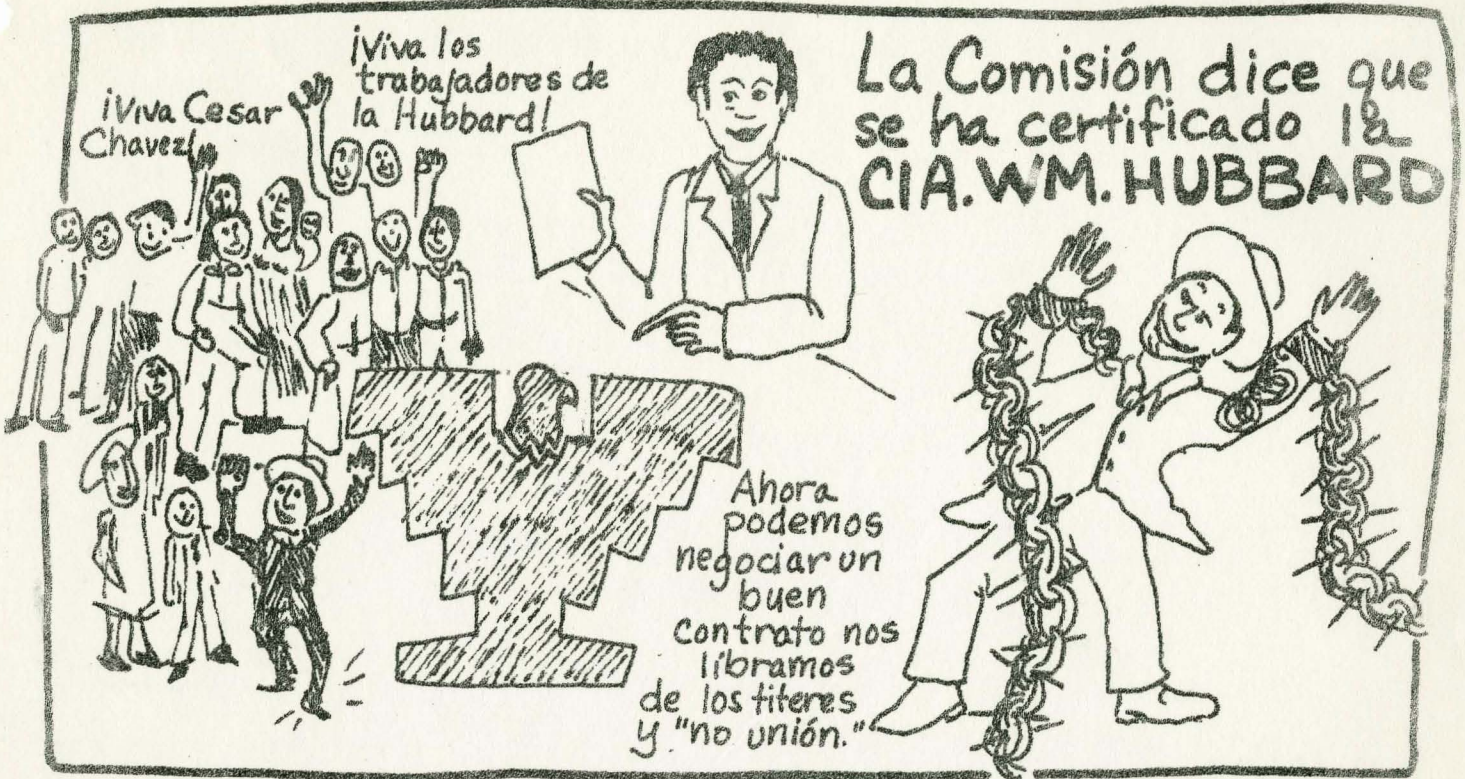 ¡Viva Cesar
Chavez!
¡Viva los
trabajadores de
la Hubbard!
La Comisión dice que
se ha certificado la
CIA. WM. HUBBARD
Ahora
podemos
negociar un
buen
contrato nos
libramos
de los titeres
y "no unión."